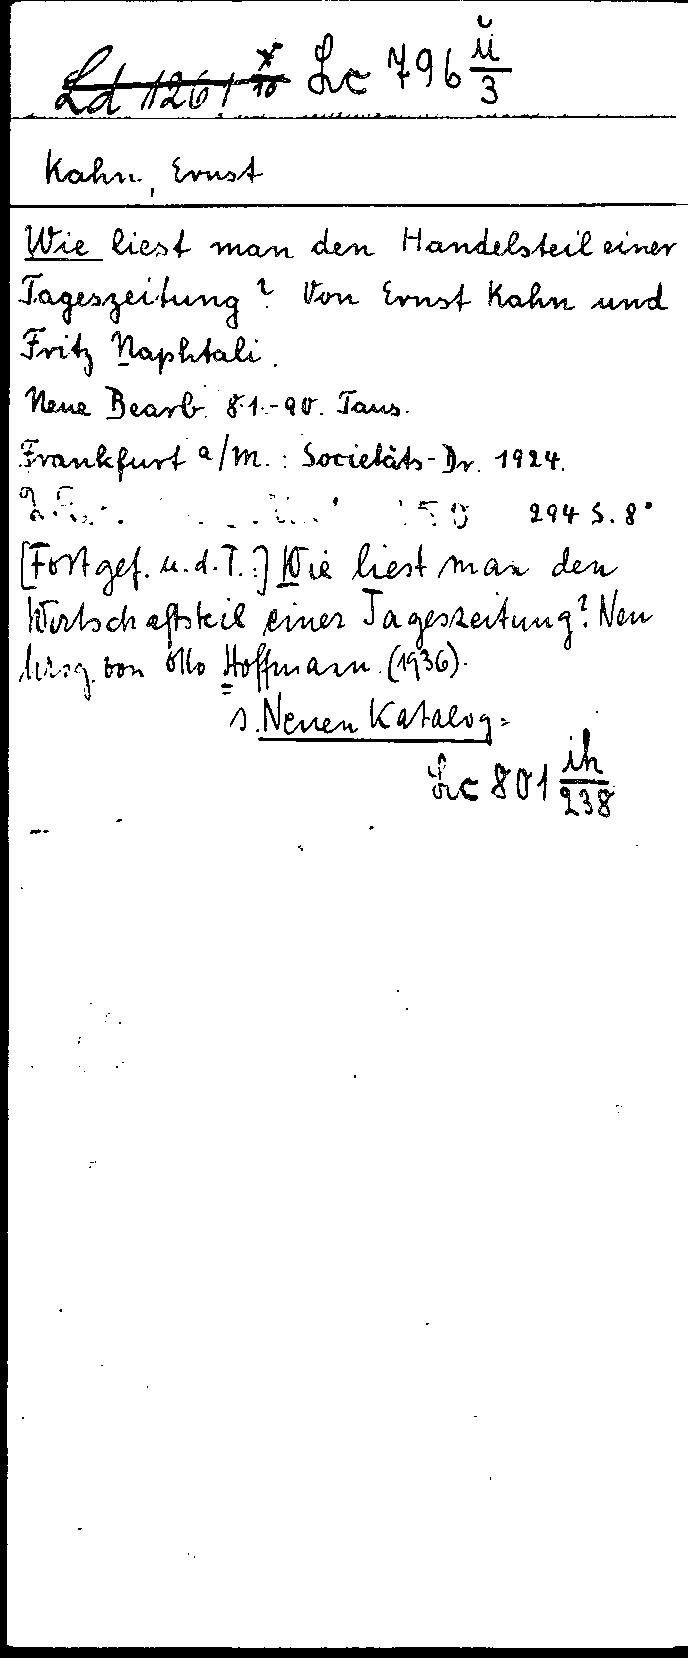 Ld 1261 x/10 Lc 796 ŭ/3
Kahn, Ernst
Wie liest man den Handelsteil einer
Tageszeitung? Von Ernst Kahn und
Fritz Naphtali.
Neue Bearb. 81.-90. Taus.
Frankfurt a/M.: Societäts-Dr. 1924.
294 S. 8°
[Fortgef. u. d. T.:] Wie liest man den
Wirtschaftsteil einer Tageszeitung? Neu
hrsg. von Otto Hoffmann. (1936).
s. Neuen Katalog:
Lc 801 ih/238